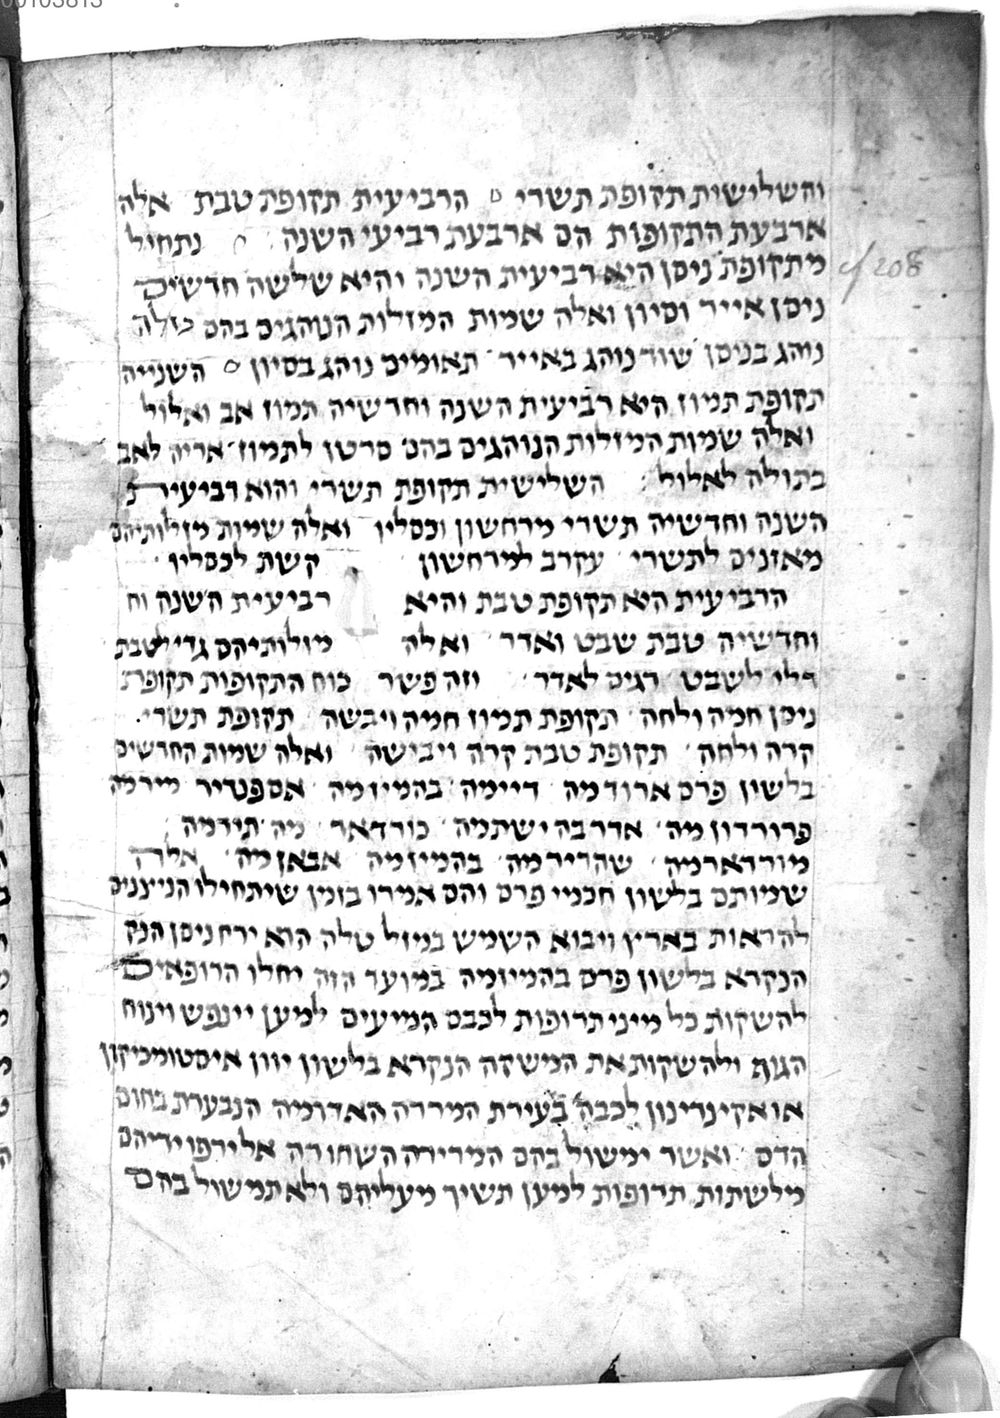 והשלישית תקופת תשרי ס הרביעית תקופת טבת אלה
ארבעת התקופות הם ארבעת רביעי השנה נתחיל
מתקופת ניסן היא רביעית השנה והיא שלשה חדשים
cf 208
ניסן אייר וסיון ואלה שמות המזלות הנוהגים בהם טלה
נוהג בניסן שור נוהג באייר תאומים נוהג בסיון ס השנייה
תקופת תמוז היא רביעית השנה וחדשיה תמוז אב ואלול
ואלה שמות המזלות הנוהגים בהם סרטן לתמוז אריה לאב
בתולה לאלול : השלישית תקופת תשרי והוא רביעית
השנה וחדשיה תשרי מרחשון וכסליו ואלה שמות מזלותיהם
מאזנים לתשרי עקרב למרחשון קשת לכסליו
הרביעית היא תקופת טבת והיא רביעית השנה וח
וחדשיה טבת שבט ואדר ואלה מזלותיהם גדי לטבת
דלי לשבט דגים לאדר וזה פשר כוח התקופות תקופת
ניסן חמה ולחה תקופת תמוז חמה ויבשה תקופת תשרי
קרה ולחה תקופת טבת קרה ויבישה ואלה שמות החדשים
בלשון פרס ארודמה דיימה בהמיזמה אספנטיר מירמה
פרורדון מה אדרבה ישתמה כורדאד מה תירמה
מורדארמה שהרירמה בהמיזמה אבאן מה אלה
שמותם בלשון חכמי פרס והם אמרו בזמן שיתחילו הניצנים
להראות בארץ ויבוא השמש במזל טלה הוא ירח ניסן הנק
הנקרא בלשון פרס בהמיזמה במועד הזה יחלו הרופאים
להשקות כל מיני תרופות לכבס המיעים למען יינפש וינוח
הגוף ולהשקות את המשקה הנקרא בלשון יוון איסטומכיקון
או אקינדינון לכבה בעירת המררה האדומה הנבערת בחום
הדם ואשר ימשול בהם המרירה השחורה אל ירפו ידיהם
מלשתות תרופות למען תשיך מעליהם ולא תמשול בהם